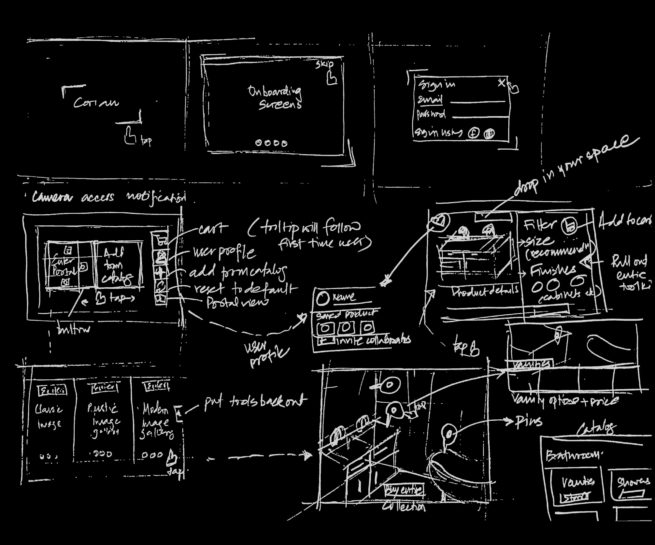 Corian
tap
Skip
Onboarding
Screens
Sign in
X
Email
Password
Sign in using
Camera access notification
Enter
Portal
Add
from
catalog
tap
cart (tooltip will follow
first time user)
user profile
add from catalog
reset to default
Portal view
user
profile
Name
Saved Product
Invite collaborators
drop in your space
Filter
size
(recommendn)
Finishes
(cabinets etc)
Add to cart
Pull out
Product details
tap
Vanities
Vanity options + price
Enter
Enter
Enter
Classic
Image
Rustic
Image
Modern
Image
gallery
tap
put tools back out
tap
Pins
Buy entire
collection
Catalog
Bathroom
Vanities
Showers